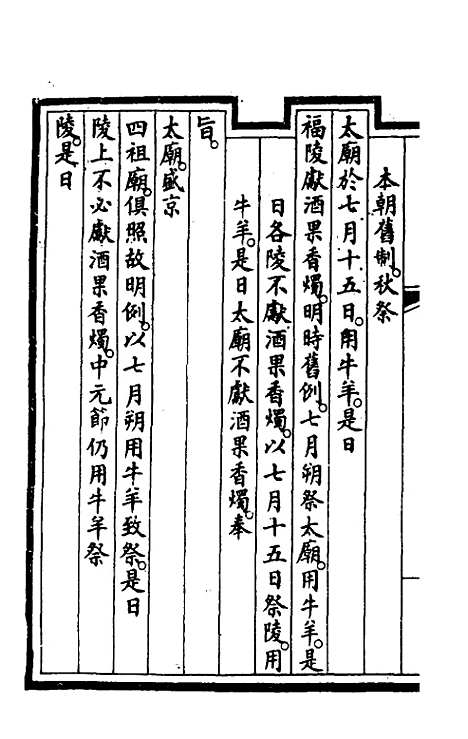 本朝舊制。秋祭
太廟於七月十五日。用牛羊。是日
福陵獻酒果香燭。明時舊例。七月朔祭太廟。用牛羊。是
日各陵不獻酒果香燭。以七月十五日祭陵。用
牛羊。是日太廟不獻酒果香燭。奉
旨。
太廟。盛京
四祖廟。俱照故明例。以七月朔用牛羊致祭。是日
陵上不必獻酒果香燭。中元節仍用牛羊祭
陵。是日